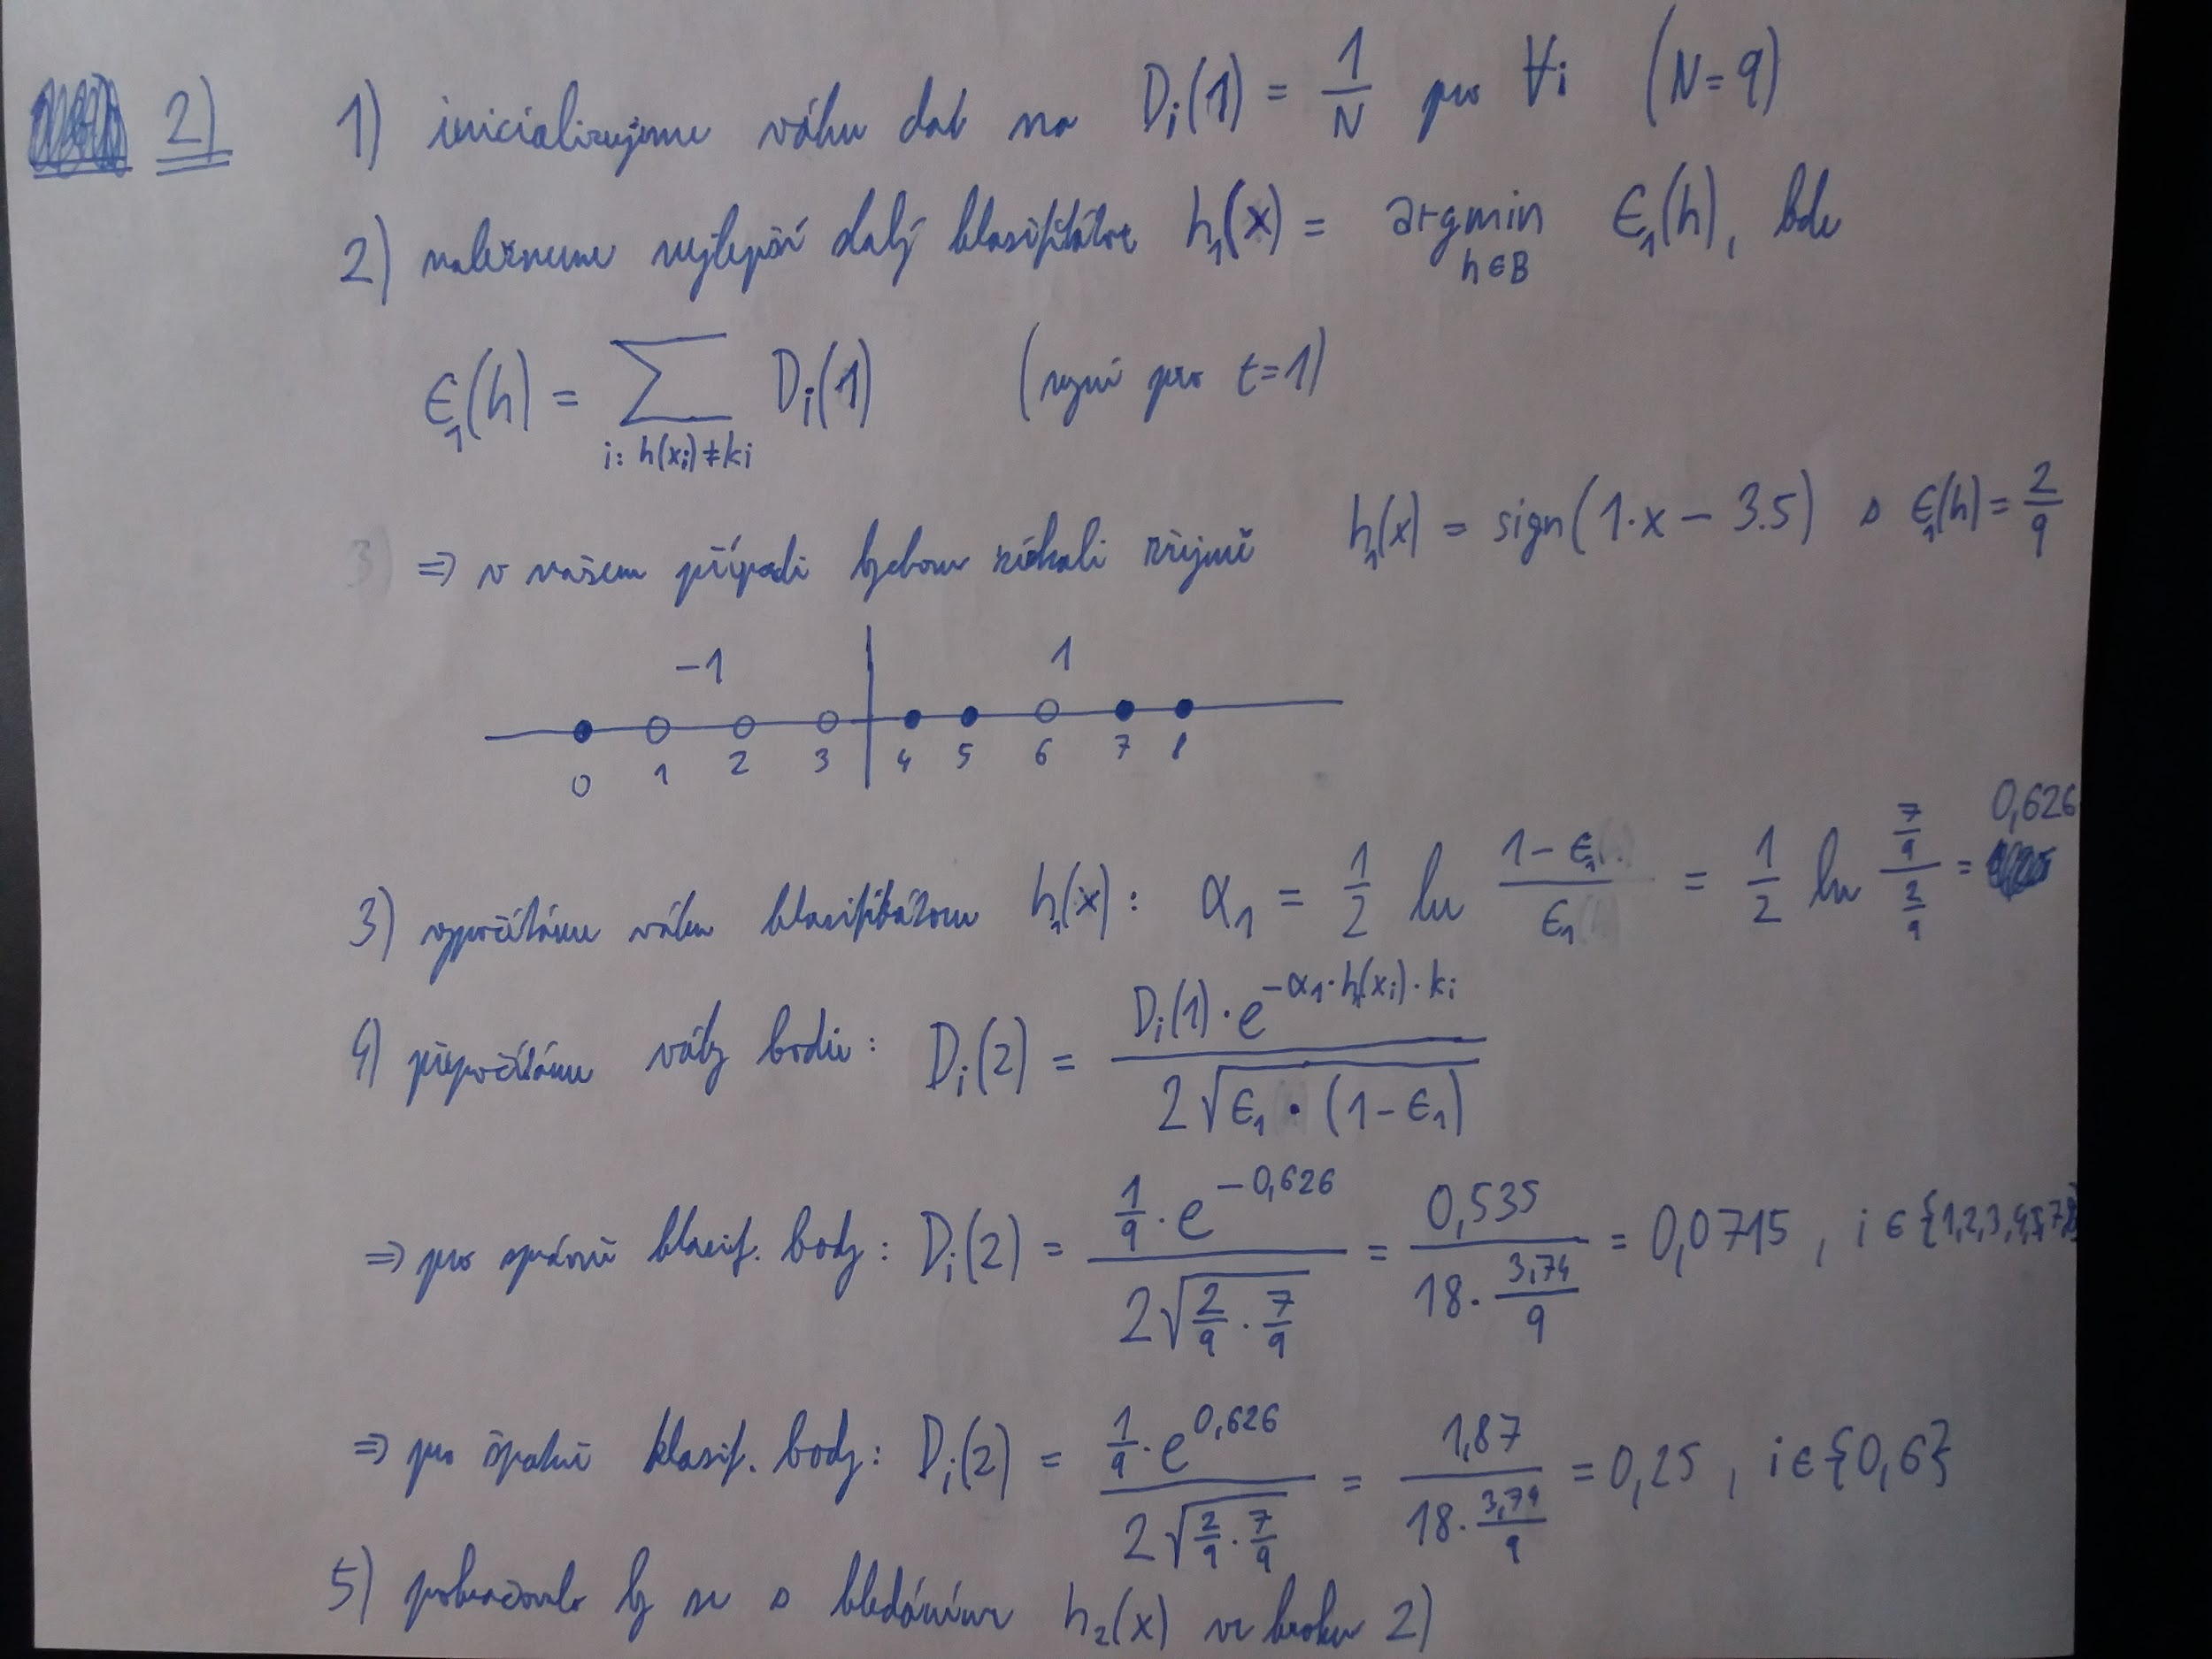 2) 1) inicializujeme váhu dat na D_i(1) = 1/N pro ∀i (N=9)
2) nalezneme nejlepší slabý klasifikátor h_1(x) = argmin_{h∈B} ϵ_1(h), kde
ϵ_1(h) = ∑_{i: h(x_i)≠k_i} D_i(1) (nyní pro t=1)
3) ⇒ v našem případě bychom získali zřejmě h_1(x) = sign(1·x − 3.5) s ϵ_1(h) = 2/9
−1 1
0 1 2 3 4 5 6 7 8
3) vypočítáme váhu klasifikátoru h_1(x): α_1 = 1/2 ln (1−ϵ_1)/ϵ_1 = 1/2 ln (7/9)/(2/9) = 0,626
4) přepočítáme váhy bodů: D_i(2) = (D_i(1)·e^{−α_1·h_1(x_i)·k_i})/(2√(ϵ_1·(1−ϵ_1)))
⇒ pro správně klasif. body: D_i(2) = (1/9·e^{−0,626})/(2√(2/9·7/9)) = 0,535/(18·3,74/9) = 0,0715, i∈{1,2,3,4,5,7,8}
⇒ pro špatně klasif. body: D_i(2) = (1/9·e^{0,626})/(2√(2/9·7/9)) = 1,87/(18·3,74/9) = 0,25, i∈{0,6}
5) pokračovalo by se s hledáním h_2(x) v kroku 2)